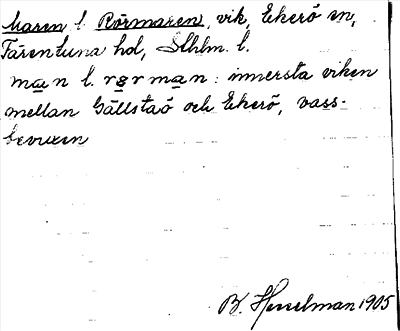 Maren l. Rörmaren, vik, Ekerö sn,
Färentuna hd, Sthlm. l.
man l. rørman: innersta viken
mellan Gällstaö och Ekerö, vass-
bevuxen
B. Hesselman 1905